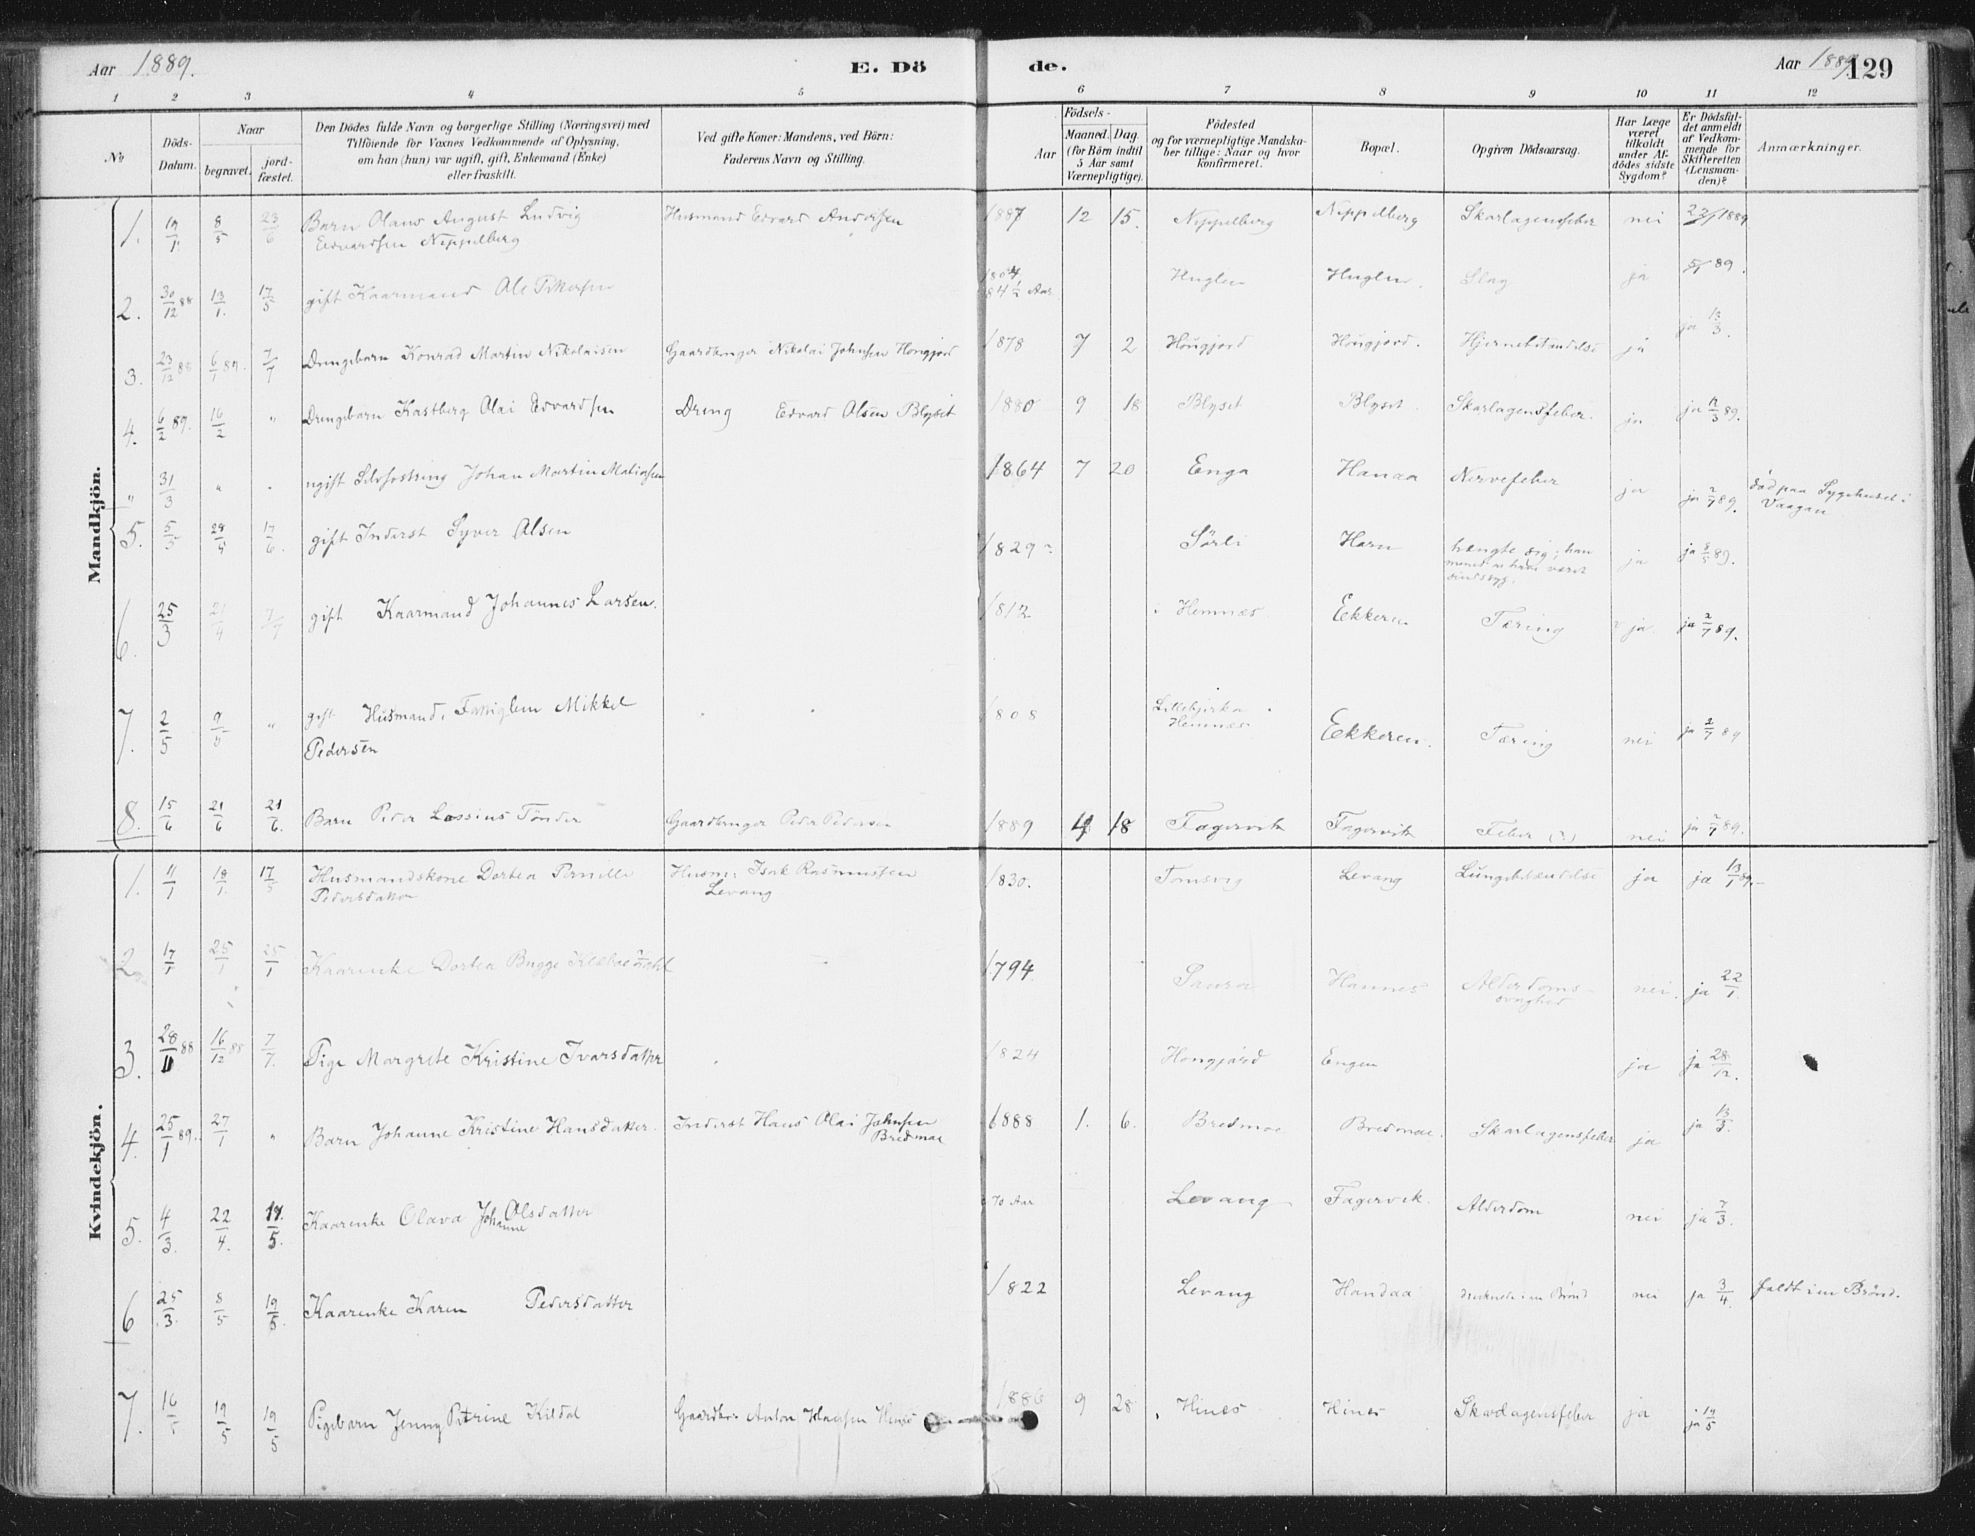 Aar 1889.
E. Dö
de.
Aar 1889
129
1 2 3 4 5 6 7 8 9 10 11 12
No
Döds-Datum.
Naar
begravet.
jord-fæstet.
Den Dödes fulde Navn og borgerlige Stilling (Næringsvei) med
Tilföiende for Voxnes Vedkommende af Oplysning,
om han (hun) var ugift, gift, Enkemand (Enke)
eller fraskilt.
Ved gifte Koner: Mandens, ved Börn:
Faderens Navn og Stilling.
Födsels-
Aar
Maaned. Dag.
(for Börn indtil
5 Aar samt
Værnepligtige).
Födested
og for værnepligtige Mandska-
ber tillige: Naar og hvor
konfirmeret.
Bopæl.
Opgiven Dödsaarsag.
Har Læge
været
tilkaldt
under Af-
dödes sidste
Sygdom?
Er Dödsfal-
det anmeldt
af Vedkom-
mende for
Skifteretten
(Lensman-
den)?
Anmærkninger.
Mandkjön.
1. 19/1 8/5 23/6 Barn Olaus August Ludvig Husmand Edvard Andersen 1887 12 15. Neppelberg Neppelberg Skarlagensfeber nei 23/1 1889
Edvardsen Neppelberg
2. 30/12 88 13/1. 17/5 gift Kaarmand Ole Petersen 1804 Huglen Huglen. Slag ja 5/1 89.
84 1/2 Aar
3. 23/12 88 6/1 89. 7/7 Drengebarn Konrad Martin Nikolaisen Gaardbruger Nikolai Johnsen Hougjord 1878 7 2 Hougjord Hougjord. Hjernebetændelse ja ja 13/3.
4. 6/2 89. 16/2 " Drengebarn Kastberg Olai Edvardsen Dreng Edvard Olsen Blyset 1880 9 18 Blyset Blyset. Skarlagensfeber. ja ja 12/3 89.
" 31/3 " . ugift Selvfostring Johan Martin Matiassen 1864 7 20 Enga Hanaa Nervefeber ja ja 2/7 89. död paa Sygehuset i
Vaagan
5. 5/5 29/5 17/6. gift Inderst Syver Olsen 1829 Sørli Harn hængte sig; han
ja ja 8/5 89.
sindssyg.
6. 25/3 21/4 7/7 gift Kaarmand Johannes Larsen. 1812 Hemnæs Eekkeren Tæring ja. ja 2/7 89.
7. 2/5 9/5 " gift Husmand, Fattiglem Mikkel 1808 Lillebjerka Eekkeren. Tæring nei ja 2/7 89
Pedersen Hemnæs
8. 15/6 21/6 21/6. Barn Peder Lossius Tönder Gaardbruger Peder Pedersen 1889 4 18 Fagervik Fagervik Feber (?) nei ja 2/7 89.
Kvindekjön.
1. 11/1 19/1. 17/5 Husmandskone Dortea Pernille Husm: Isak Rasmussen 1830. Tomsvig Levang Lungebetændelse ja ja 13/1 89.
Pedersdatter Levang
2 17/1 25/1 25/1 Kaarenke Dortea Bugge Klæboe 1794. Saura Hannes Alderdoms- nei. ja 22/1.
svaghed
3. 28/11 88 16/12 88 7/7. Pige Margrete Kristine Ivarsdatter 1824 Hongjörd Engen ja ja 28/12.
4. 25/1 89. 27/1 " Barn Johanne Kristine Hansdatter. Inderst Hans Olai Johnsen 1888 1. 6. Bredmoe Bredmoe. Skarlagensfeber ja ja 13/3.
Bredmoe
5. 4/3. 22/4. 19/5. Kaarenke Olava Johanne Olsdatter 70 Aar Levang Fagervik. Alderdom nei ja 7/3.
6 25/3. 8/5 19/5. Kaarenke Karen Pedersdatter 1822 Levang Handaa druknede i en Brönd nei ja 3/4. faldt i en Brönd.
7. 16/5 19/5 19/5 Pigebarn Jenny Petrine Kildal Gaardbr. Anton Hansen Hines 1886 9 28 Hines Hines Skarlagensfeber ja ja 19/5